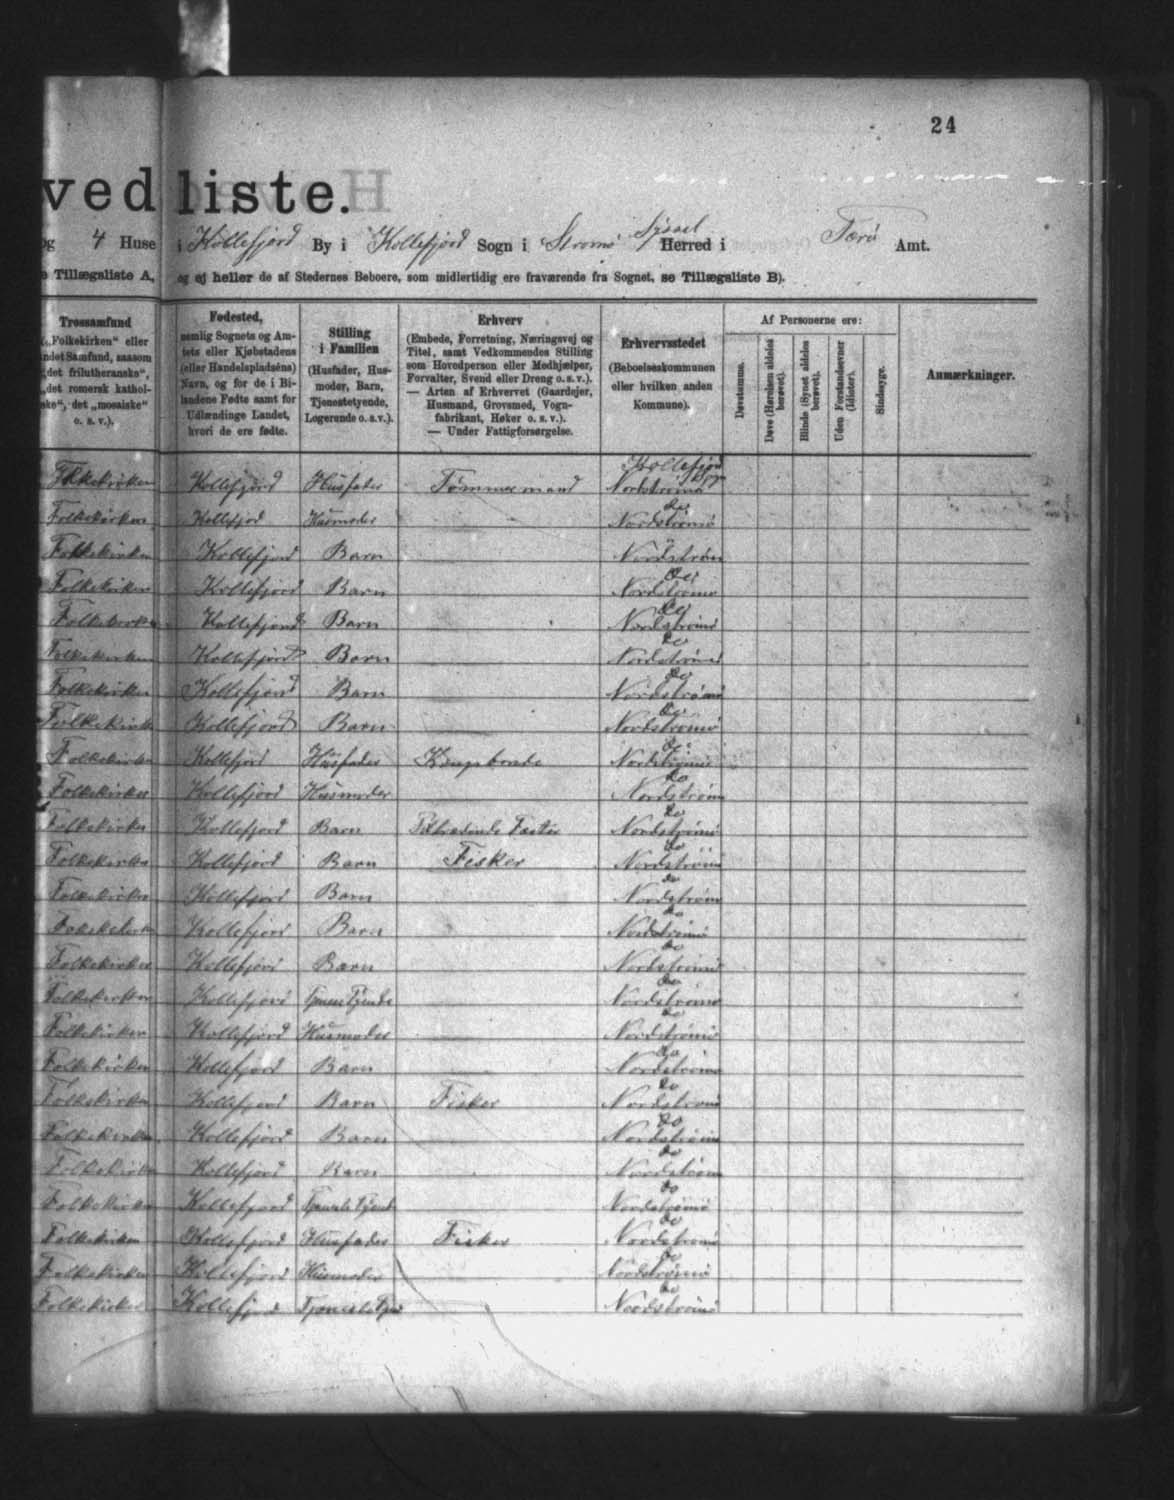 24
ved liste.
og 4 Huse i Kollefjord By i Kollefjord Sogn i Stromø Syssel Herred i Færø Amt.
e Tillægsliste A, og ej heller de af Stedernes Beboere, som midlertidig ere fraværende fra Sognet, se Tillægsliste B).
Trossamfund
(„Folkekirken“ eller
andet Samfund, saasom
„det frilutheranske“,
„det romersk kathol-
ske“, det „mosaiske“
o. s. v.).
Fødested,
nemlig Sognets og Am-
tets eller Kjøbstadens
(eller Handelspladsens)
Navn, og for de i Bi-
landene Fødte samt for
Udlændinge Landet,
hvori de ere fødte.
Stilling
i Familien
(Husfader, Hus-
moder, Barn,
Tjenestetyende,
Logerende o. s. v.).
Erhverv
(Embede, Forretning, Næringsvej og
Titel, samt Vedkommendes Stilling
som Hovedperson eller Medhjælper,
Forvalter, Svend eller Dreng o. s. v.).
— Arten af Erhvervet (Gaardejer,
Husmand, Grovsmed, Vogn-
fabrikant, Høker o. s. v.).
— Under Fattigforsørgelse.
Erhvervsstedet
(Beboelseskommunen
eller hvilken anden
Kommune).
Af Personerne ere:
Døvstumme.
Døve (Hørelsen aldeles
berøvet).
Blinde (Synet aldeles
berøvet).
Uden Forstandsevner
(Idioter).
Sindssyge.
Anmærkninger.
Kollefjord
Folkekirken Kollefjord Husfader Tømmermand Nordstrømø
do
Folkekirken Kollefjord Husmoder Nordstrømø
Folkekirken Kollefjord Barn Nordstrøm
do
Folkekirken Kollefjord Barn Nordstrømø
do
Folkekirken Kollefjord Barn Nordstrømø
do
Folkekirken Kollefjord Barn Nordstrømø
do
Folkekirken Kollefjord Barn Nordstrømø
do
Folkekirke Kollefjord Barn Nordstrømø
do
Folkekirken Kollefjord Husfader Kongsbonde Nordstrømø
do
Folkekirken Kollefjord Husmoder Nordstrømø
do
Folkekirken Kollefjord Barn Nordstrømø
do
Folkekirken Kollefjord Barn Fisker Nordstrømø
do
Folkekirken Kollefjord Barn Nordstrømø
do
Folkekirken Kollefjord Barn Nordstrømø
do
Folkekirken Kollefjord Barn Nordstrømø
do
Folkekirken Kollefjord Nordstrømø
do
Folkekirken Kollefjord Husmoder Nordstrømø
do
Folkekirken Kollefjord Barn Nordstrømø
do
Folkekirken Kollefjord Barn Fisker Nordstrømø
do
Folkekirken Kollefjord Barn Nordstrømø
do
Folkekirken Kollefjord Barn Nordstrømø
do
Folkekirken Kollefjord Nordstrømø
do
Folkekirken Kollefjord Husfader Fisker Nordstrømø
do
Folkekirken Kollefjord Husmoder Nordstrømø
do
Folkekirke Kollefjord Nordstrømø